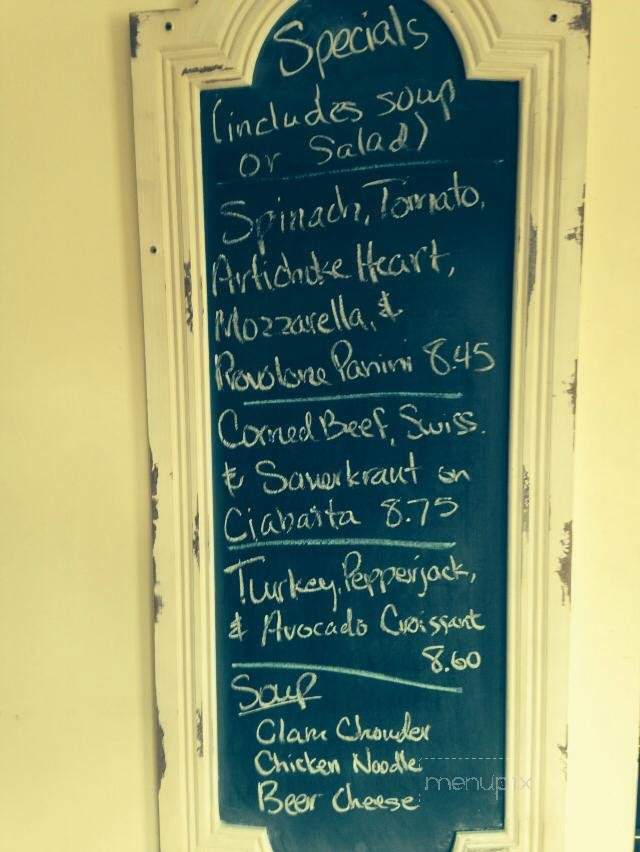 Specials
(includes soup
or Salad)
Spinach, Tomato,
Artichoke Heart,
Mozzarella, &
Provolone Panini 8.45
Corned Beef, Swiss.
& Sauerkraut on
Ciabatta 8.75
Turkey, Pepperjack,
& Avocado Croissant
8.60
Soup
Clam Chowder
Chicken Noodle
Beer Cheese
menupix